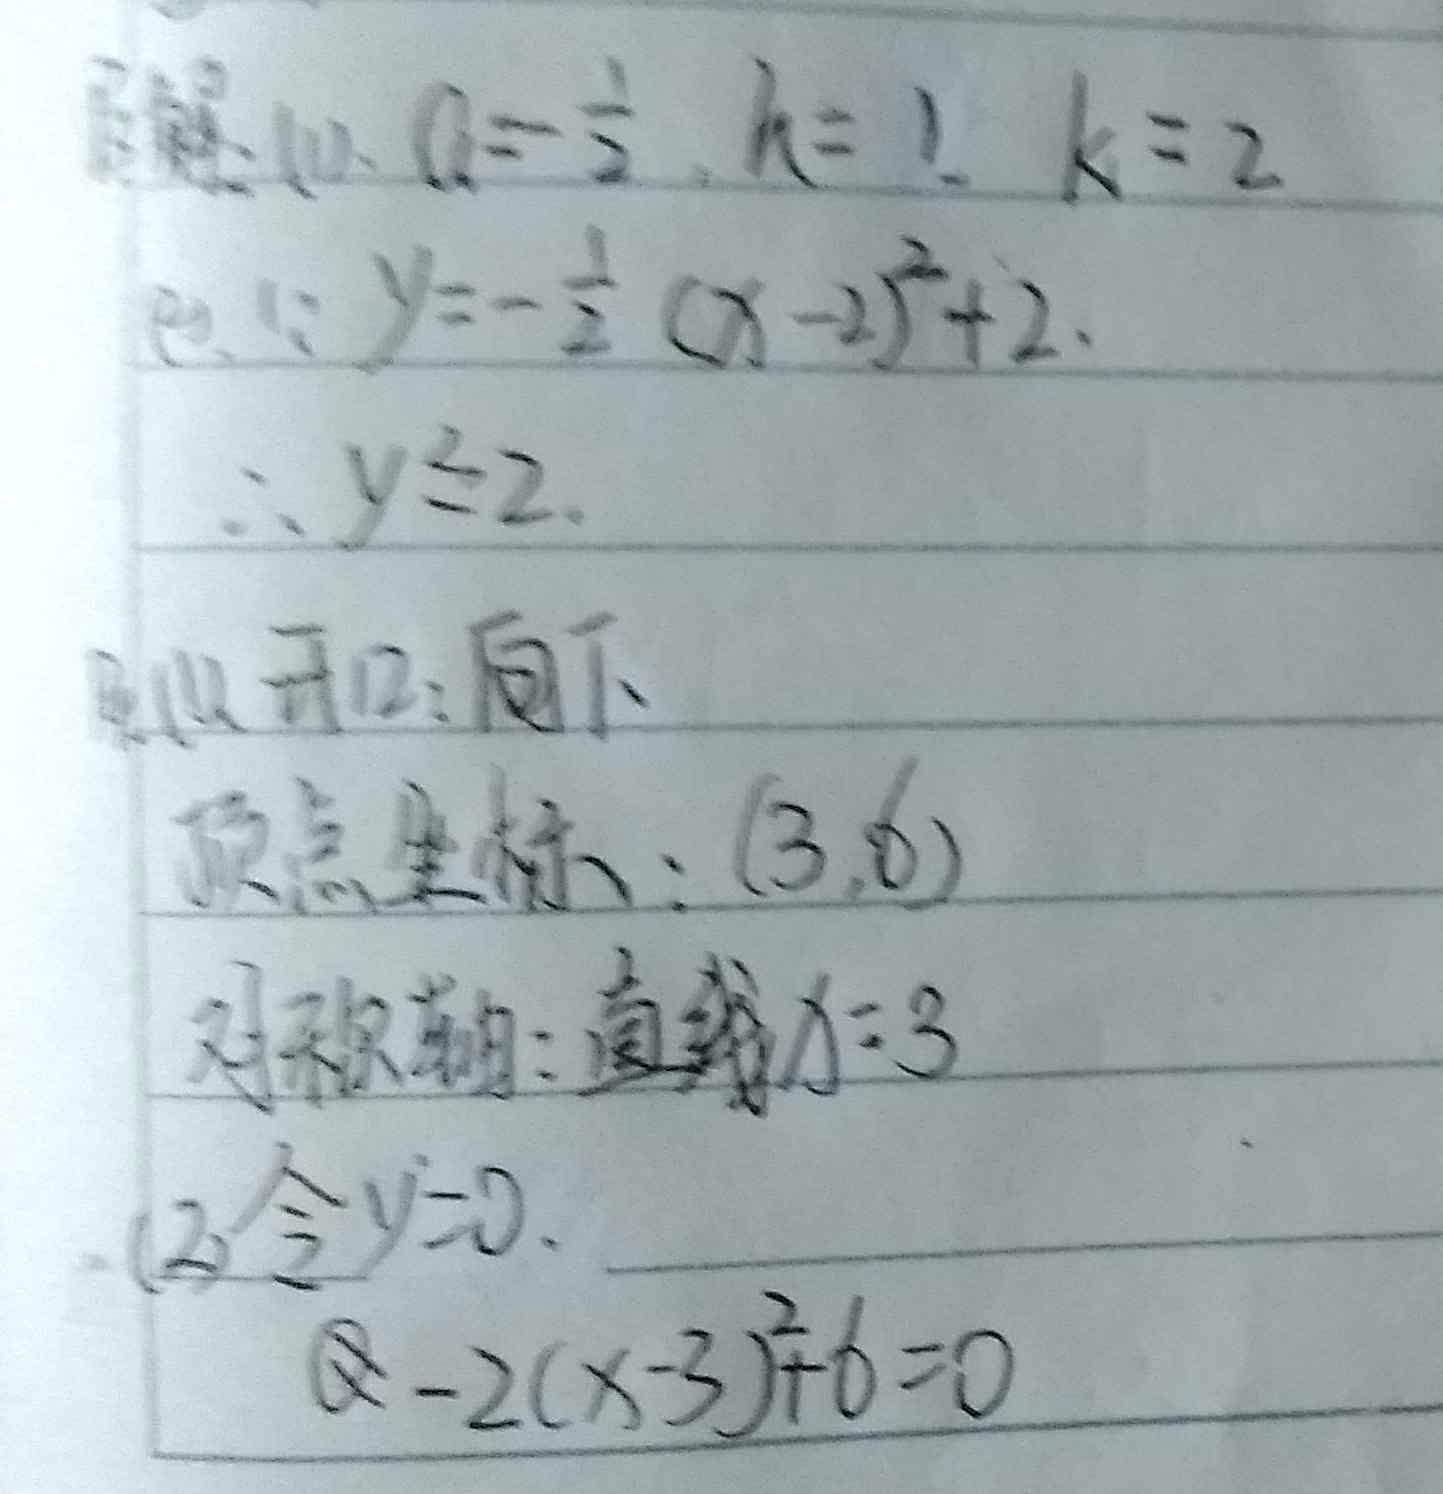 (1). a=-1/2, h=1. k=2
(2). ∵ y=-1/2 (x-2)²+2.
∴ y≤2.
(1) 开口:向下
顶点坐标:(3,6)
对称轴:直线x=3
(2) 令y=0.
-2(x-3)²+6=0